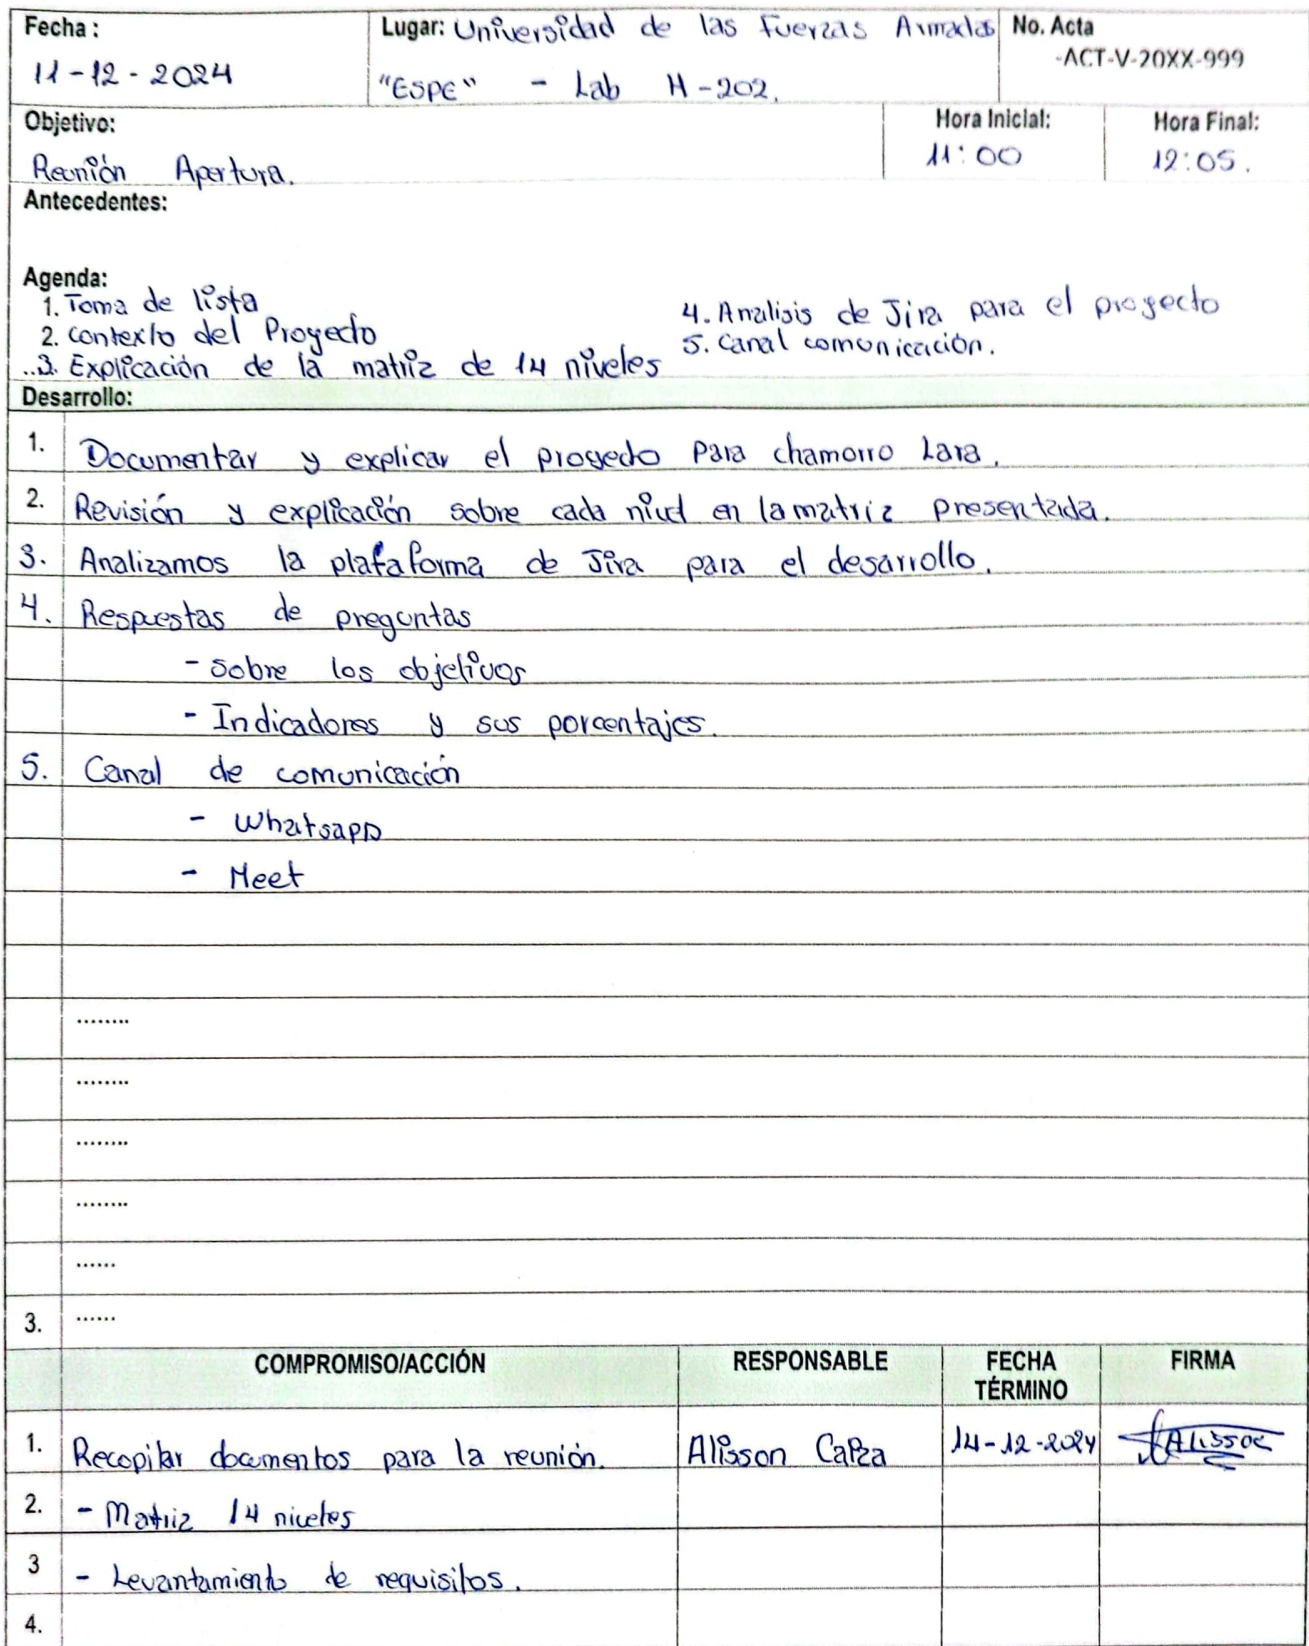 Fecha : Lugar: Universidad de las Fuerzas Armadas No. Acta
11-12-2024 "ESPE" - Lab H-202. -ACT-V-20XX-999
Objetivo: Hora Inicial: Hora Final:
Reunión Apertura. 11:00 12:05.
Antecedentes:
Agenda:
1. Toma de lista
2. Contexto del Proyecto
..3. Explicación de la matriz de 14 niveles
4. Analisis de Jira para el proyecto
5. Canal comunicación.
Desarrollo:
1. Documentar y explicar el proyecto para chamorro Lara.
2. Revisión y explicación sobre cada nivel en la matriz presentada.
3. Analizamos la plataforma de Jira para el desarrollo.
4. Respuestas de preguntas
- Sobre los objetivos
- Indicadores y sus porcentajes.
5. Canal de comunicación
- Whatsapp
- Meet
........
........
........
........
......
3. ......
COMPROMISO/ACCIÓN RESPONSABLE FECHA TÉRMINO FIRMA
1. Recopilar documentos para la reunión. Alisson Caiza 14-12-2024 Alisson
2. - Matriz 14 niveles
3 - Levantamiento de requisitos.
4.